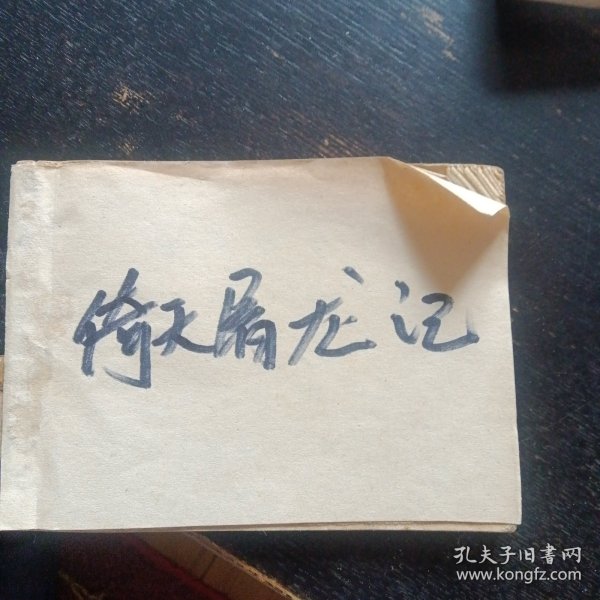 倚天屠龙记
孔夫子旧書网
www.kongfz.com